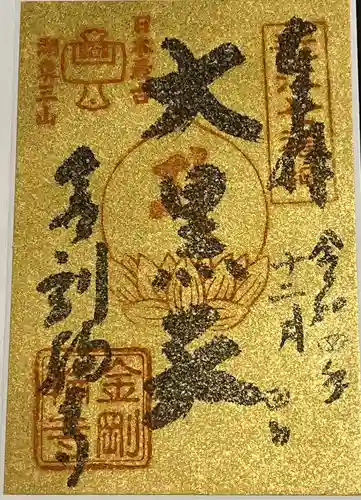 奉拝
令和四年
十二月
大黒天
金剛輪寺
日本最古
湖東三山
金剛
輪寺